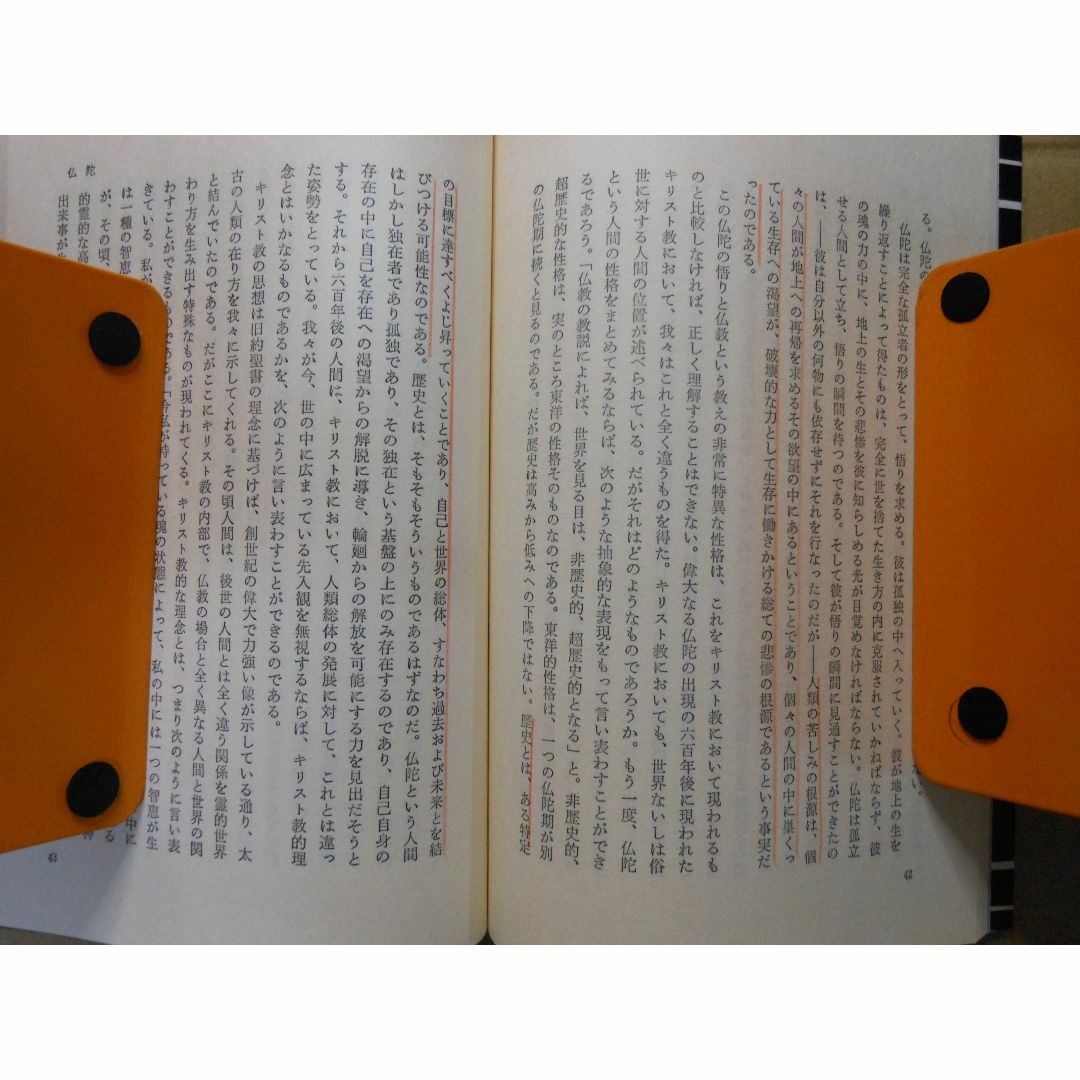 る。仏陀の
仏陀は完全な孤立者の形をとって、悟りを求める。彼は孤独の中へ入っていく。彼が地上の生を
繰り返すことによって得たものは、完全に世を捨てた生き方の内に克服されていかねばならず、彼
の魂の力の中に、地上の生とその悲惨を彼に知らしめる光が目覚めなければならない。仏陀は孤立
せる人間として立ち、悟りの瞬間を待つのである。そして彼が悟りの瞬間に見通すことができたの
は、――彼は自分以外の何物にも依存せずにそれを行なったのだが――人類の苦しみの根源は、個
々の人間が地上への再帰を求めるその欲望の中にあるということであり、個々の人間の中に巣くっ
ている生存への渇望が、破壊的な力として生存に働きかける総ての悲惨の根源であるという事実だ
ったのである。
この仏陀の悟りと仏教という教えの非常に特異な性格は、これをキリスト教において現われるも
のと比較しなければ、正しく理解することはできない。偉大なる仏陀の出現の六百年後に現われた
キリスト教において、我々はこれと全く違うものを得た。キリスト教においても、世界ないしは俗
世に対する人間の位置が述べられている。だがそれはどのようなものであろうか。もう一度、仏陀
という人間の性格をまとめてみるならば、次のような抽象的な表現をもって言い表わすことができ
るであろう。「仏教の教説によれば、世界を見る目は、非歴史的、超歴史的となる」と。非歴史的、
超歴史的な性格は、実のところ東洋の性格そのものなのである。東洋的性格は、一つの仏陀期が別
の仏陀期に続くと見るのである。だが歴史は高みから低みへの下降ではない。歴史とは、ある特定
42
の目標に達すべくよじ昇っていくことであり、自己と世界の総体、すなわち過去および未来とを結
びつける可能性なのである。歴史とは、そもそもそういうものであるはずなのだ。仏陀という人間
はしかし独在者であり孤独であり、その独在という基盤の上にのみ存在するのであり、自己自身の
存在の中に自己を存在への渇望からの解脱に導き、輪廻からの解放を可能にする力を見出だそうと
する。それから六百年後の人間は、キリスト教において、人類総体の発展に対して、これとは違っ
た姿勢をとっている。我々が今、世の中に広まっている先入観を無視するならば、キリスト教的理
念とはいかなるものであるかを、次のように言い表わすことができるのである。
キリスト教の思想は旧約聖書の理念に基づけば、創世紀の偉大で力強い像が示している通り、太
古の人類の在り方を我々に示してくれる。その頃人間は、後世の人間とは全く違う関係を霊的世界
と結んでいたのである。だがここにキリスト教の内部で、仏教の場合と全く異なる人間と世界の関
わり方を生み出す特殊なものが現われてくる。キリスト教的な理念とは、つまり次のように言い表
わすことができるものである。「今私が持っている魂の状態によって、私の中には一つの智恵が生
きている。私が
は一種の智恵
が、その頃、
的な霊的な高
出来事が
仏陀
43